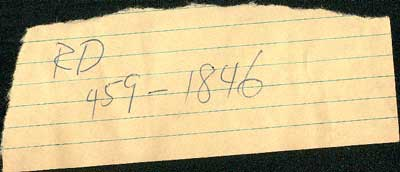 RD
459-1846